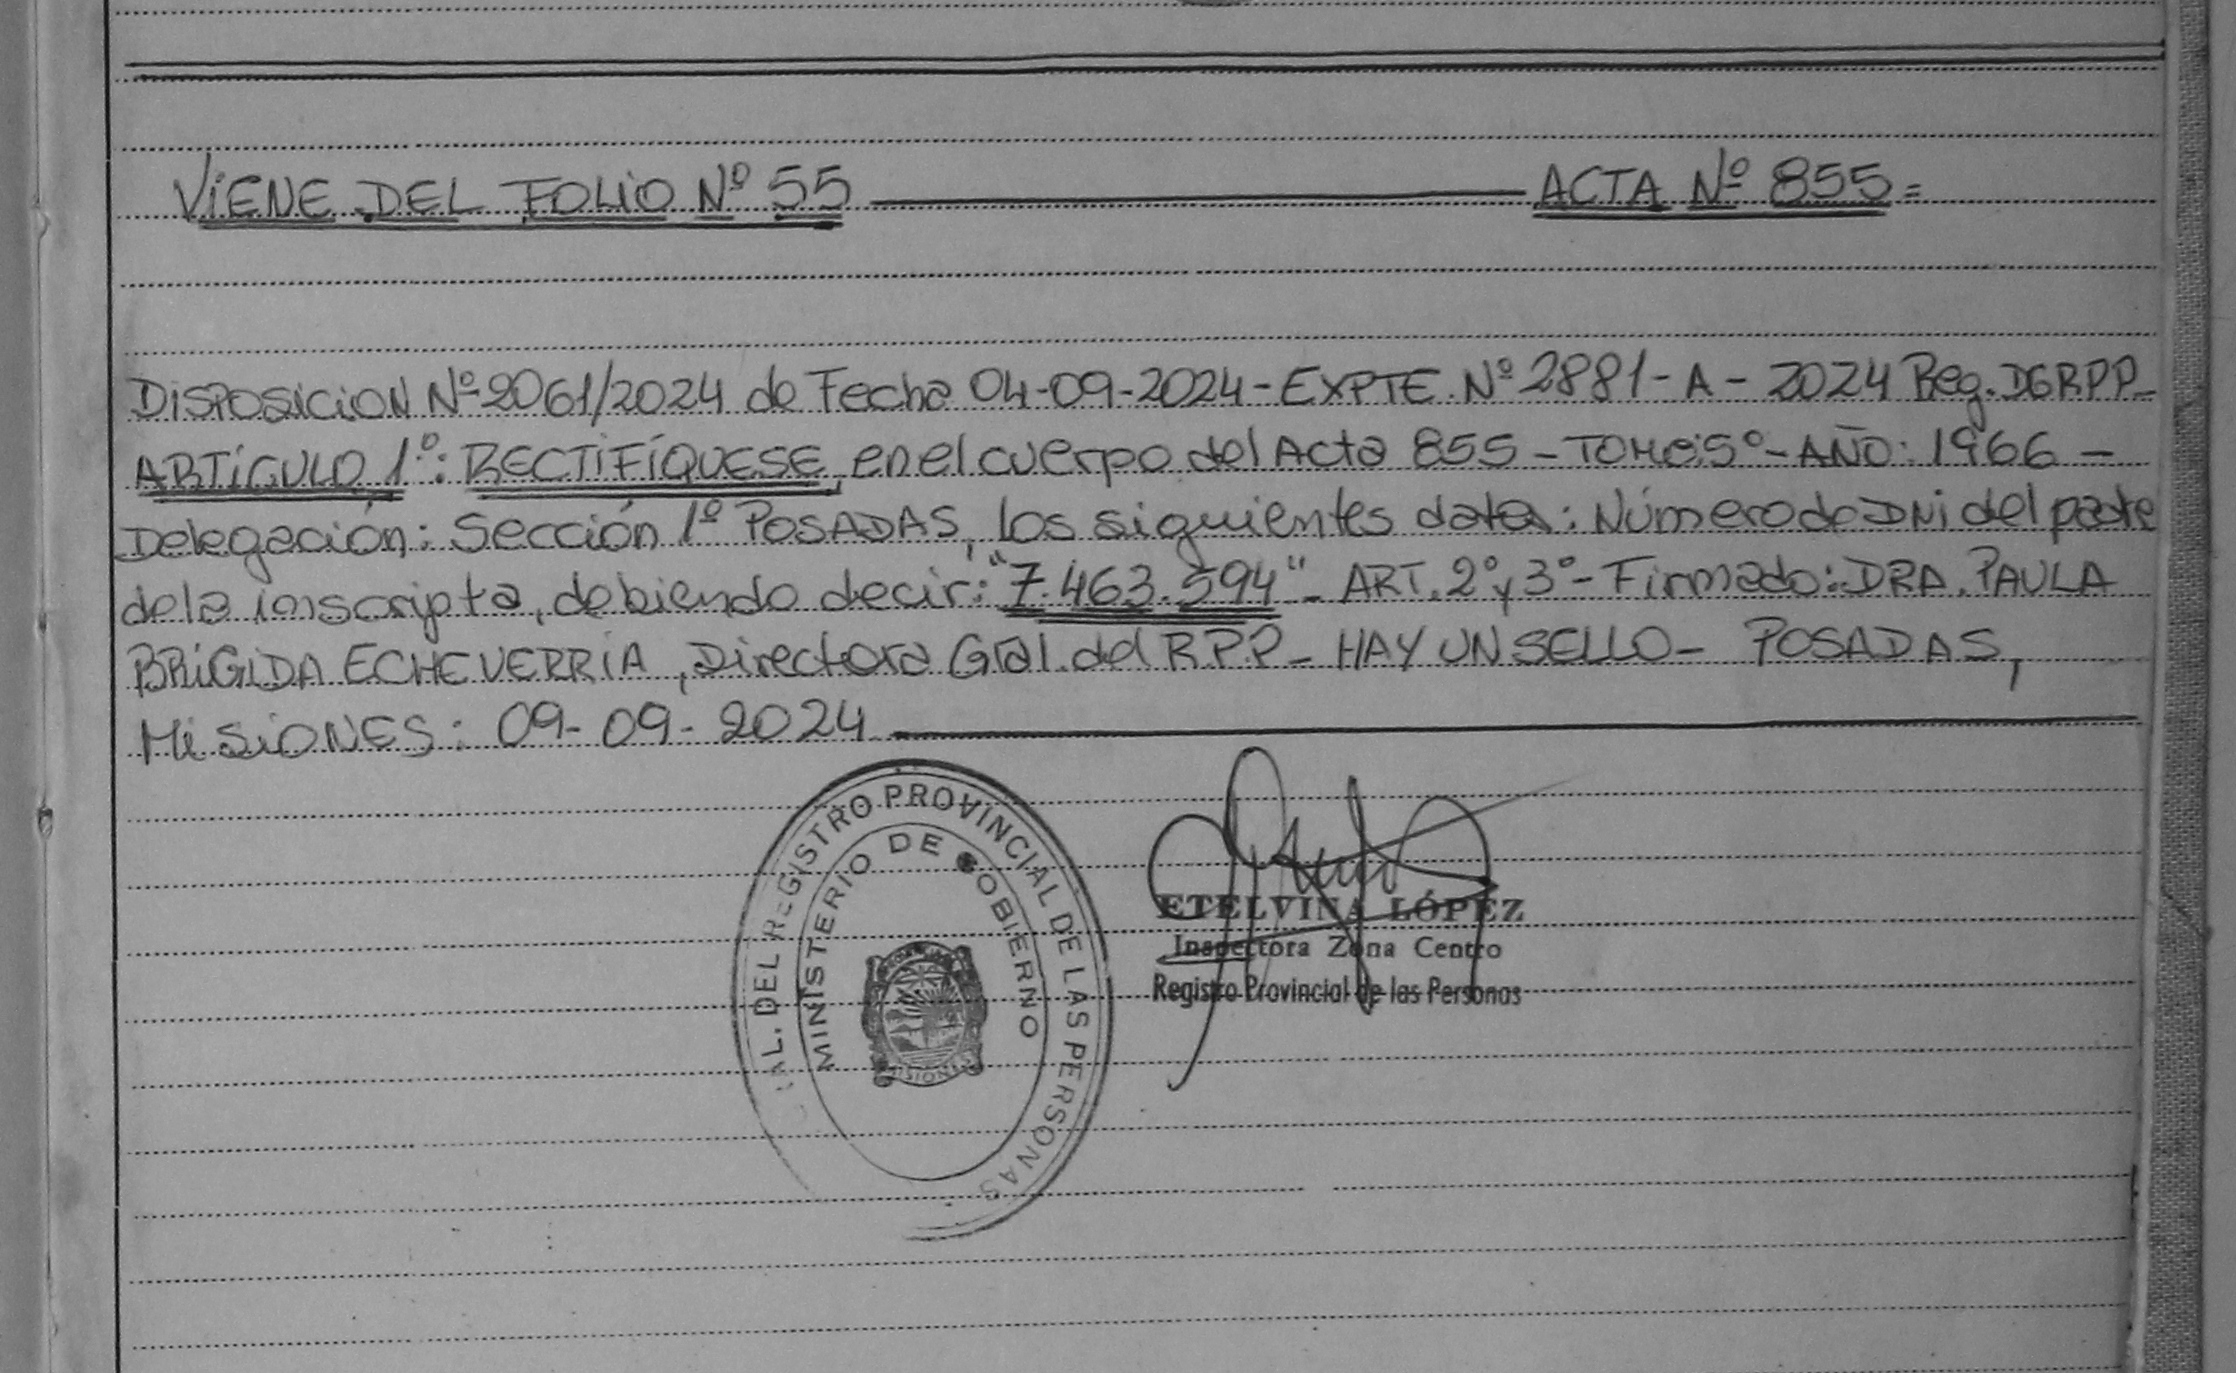 VIENE DEL FOLIO Nº 55 ACTA Nº 855=
DISPOSICION Nº 2061/2024 de Fecha 04-09-2024-EXPTE. Nº 2881-A-2024 Reg. DGRPP-
ARTÍCULO 1º: RECTIFÍQUESE, en el cuerpo del Acta 855-TOMO:5º-AÑO: 1966-
Delegación: Sección 1º POSADAS, los siguientes datos: Número de DNI del padre
de la inscripta, debiendo decir: "7.463.594"- ART. 2º y 3º- Firmado: DRA. PAULA
BRIGIDA ECHEVERRÍA, Directora Gral. del R.P.P- HAY UN SELLO- POSADAS,
MISIONES: 09-09-2024
RAL. DEL REGISTRO PROVINCIAL DE LAS PERSONAS
MINISTERIO DE GOBIERNO
MISIONES
ETELVINA LÓPEZ
Inspectora Zona Centro
Registro Provincial de las Personas